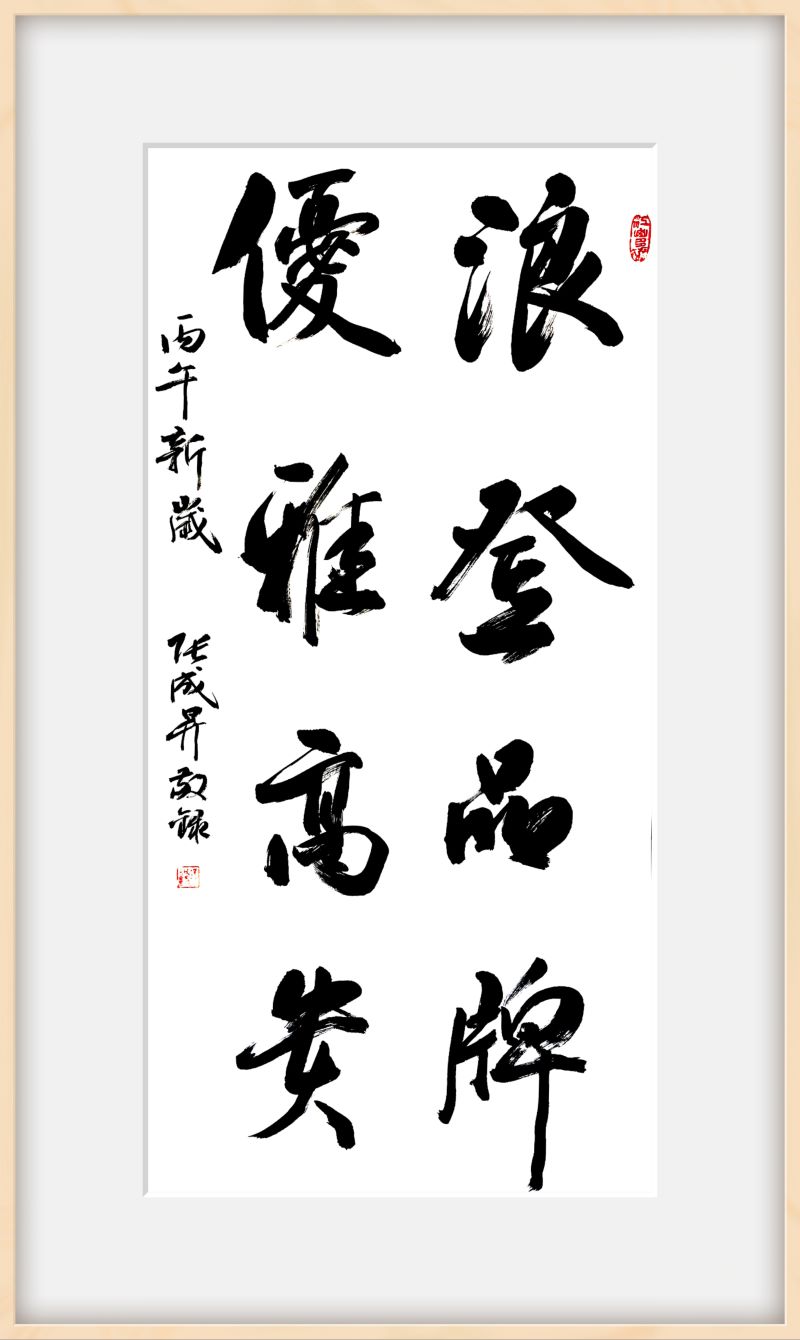 浪登品牌
優雅高贵
丙午新歲 张成昇敬録